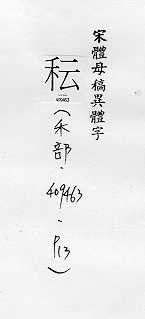 宋體母稿異體字
秐
409463
(禾部·409463·P13)